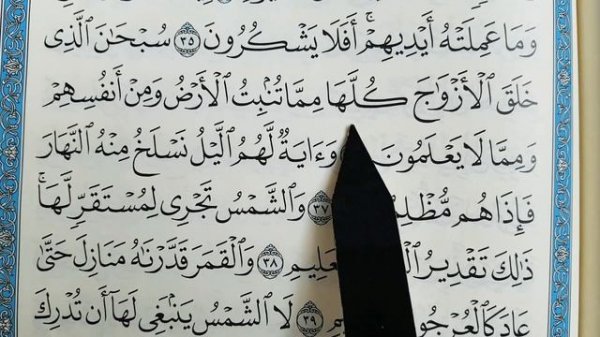 وَمَا عَمِلَتْهُ أَيْدِيهِمْۚ أَفَلَا يَشْكُرُونَ ٣٥ سُبْحَٰنَ ٱلَّذِى
خَلَقَ ٱلْأَزْوَٰجَ كُلَّهَا مِمَّا تُنۢبِتُ ٱلْأَرْضُ وَمِنْ أَنفُسِهِمْ
وَمِمَّا لَا يَعْلَمُونَ وَءَايَةٌ لَّهُمُ ٱلَّيْلُ نَسْلَخُ مِنْهُ ٱلنَّهَارَ
فَإِذَا هُم ٣٧ وَٱلشَّمْسُ تَجْرِى لِمُسْتَقَرٍّ لَّهَاۚ
ذَٰلِكَ تَقْدِيرُ ٣٨ وَٱلْقَمَرَ قَدَّرْنَٰهُ مَنَازِلَ حَتَّىٰ
عَادَ ٣٩ لَا ٱلشَّمْسُ يَنۢبَغِى لَهَآ أَن تُدْرِكَ